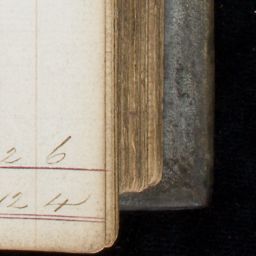 2 6
12 4